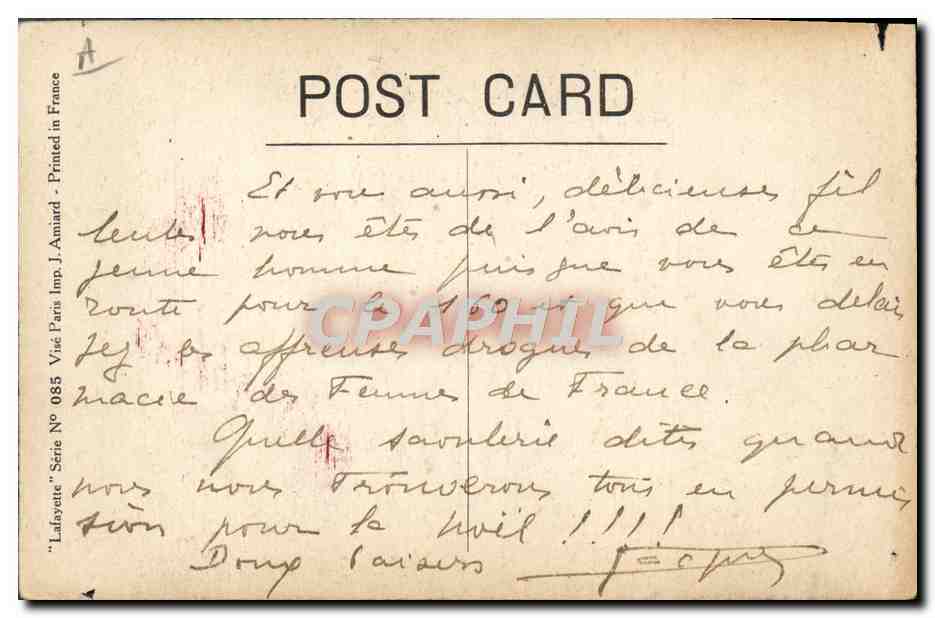 A
POST CARD
Et vous aussi, délicieuses fil
leules vous êtes de l'avis de ce
jeune homme puisque vous êtes en
route pour le 160 et que vous délais
sez les affreuses drogues de la phar
macie des Femmes de France.
Quelle saoulerie dites quand
nous nous trouverons tous en permis
sion pour la Noël !!!!
Doux baisers Jacques
"Lafayette" Série Nº 085 Visé Paris Imp. J. Amiard - Printed in France
CPAPHIL